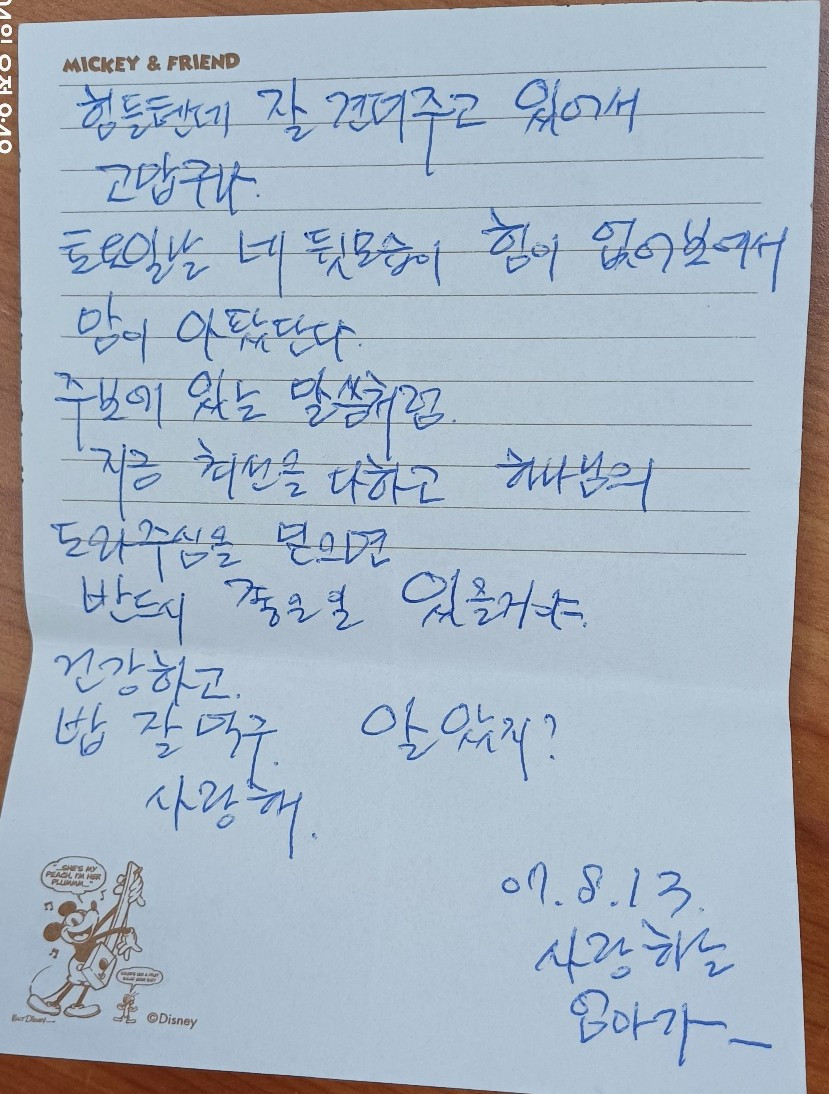 MICKEY & FRIEND
힘들텐데 잘 견뎌주고 있어서
고맙구나.
토요일날 네 뒷모습이 힘이 없어보여서
맘이 아팠단다.
주보에 있는 말씀처럼.
지금 최선을 다하고 하나님의
도와주심을 믿으면
반드시 좋은일 있을거야.
건강하고.
밥 잘먹구. 알았지?
사랑해.
07.8.13.
사랑하는
엄마가
"...SHE'S MY
PEACH, I'M HER
PLUMMM..."
©Disney